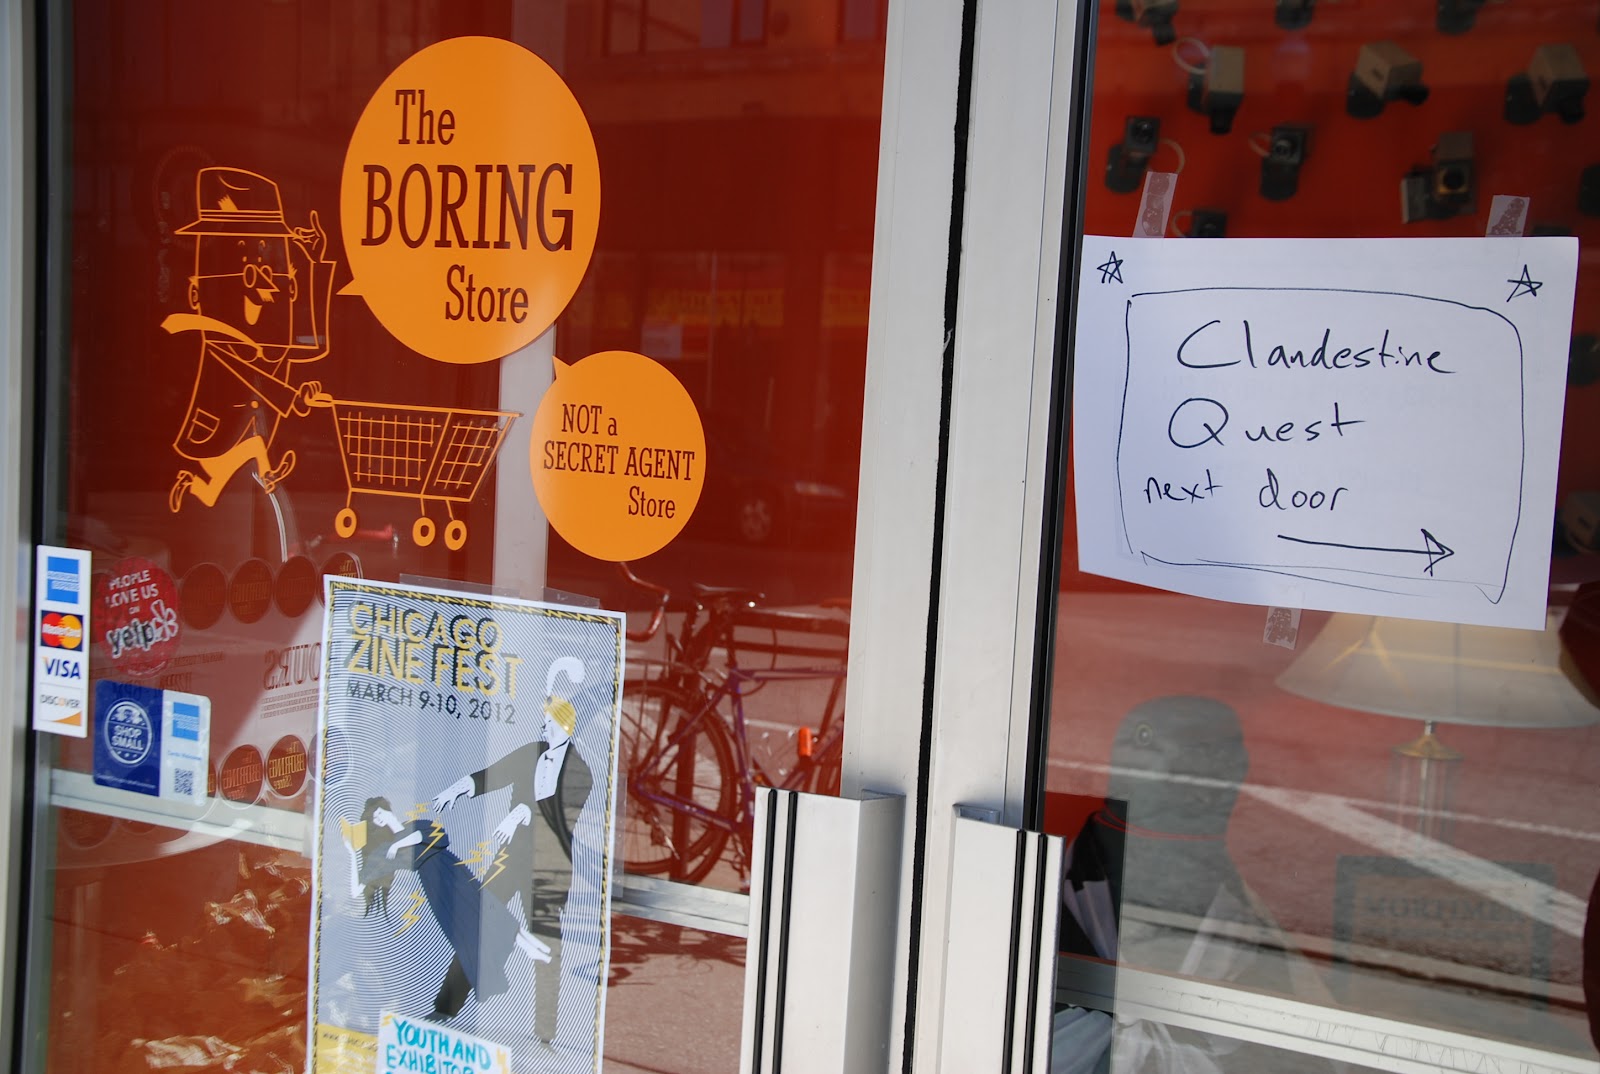 The
BORING
Store
NOT a
SECRET AGENT
Store
Clandestine
Quest
next door
AMERICAN
EXPRESS
MasterCard
VISA
DISCOVER
PEOPLE
LOVE US
ON
yelp
SHOP
SMALL
CHICAGO
ZINE FEST
MARCH 9-10, 2012
YOUTH AND
EXHIBITOR